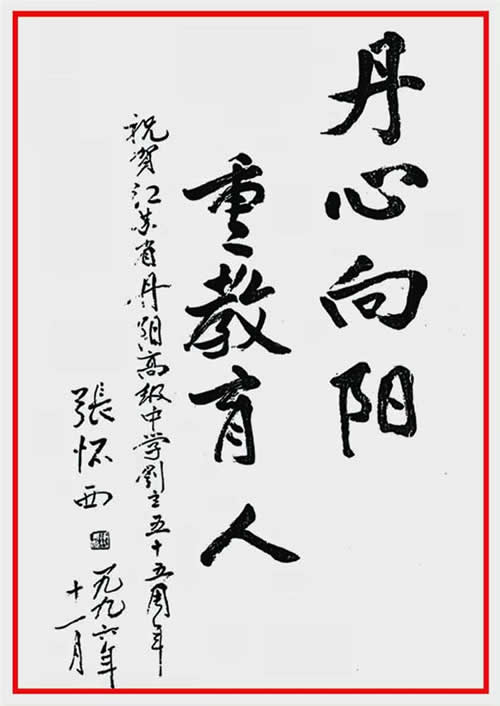 丹心向阳
重教育人
祝贺江苏省丹阳高级中学創立五十五周年
張怀西
一九九六年
十一月